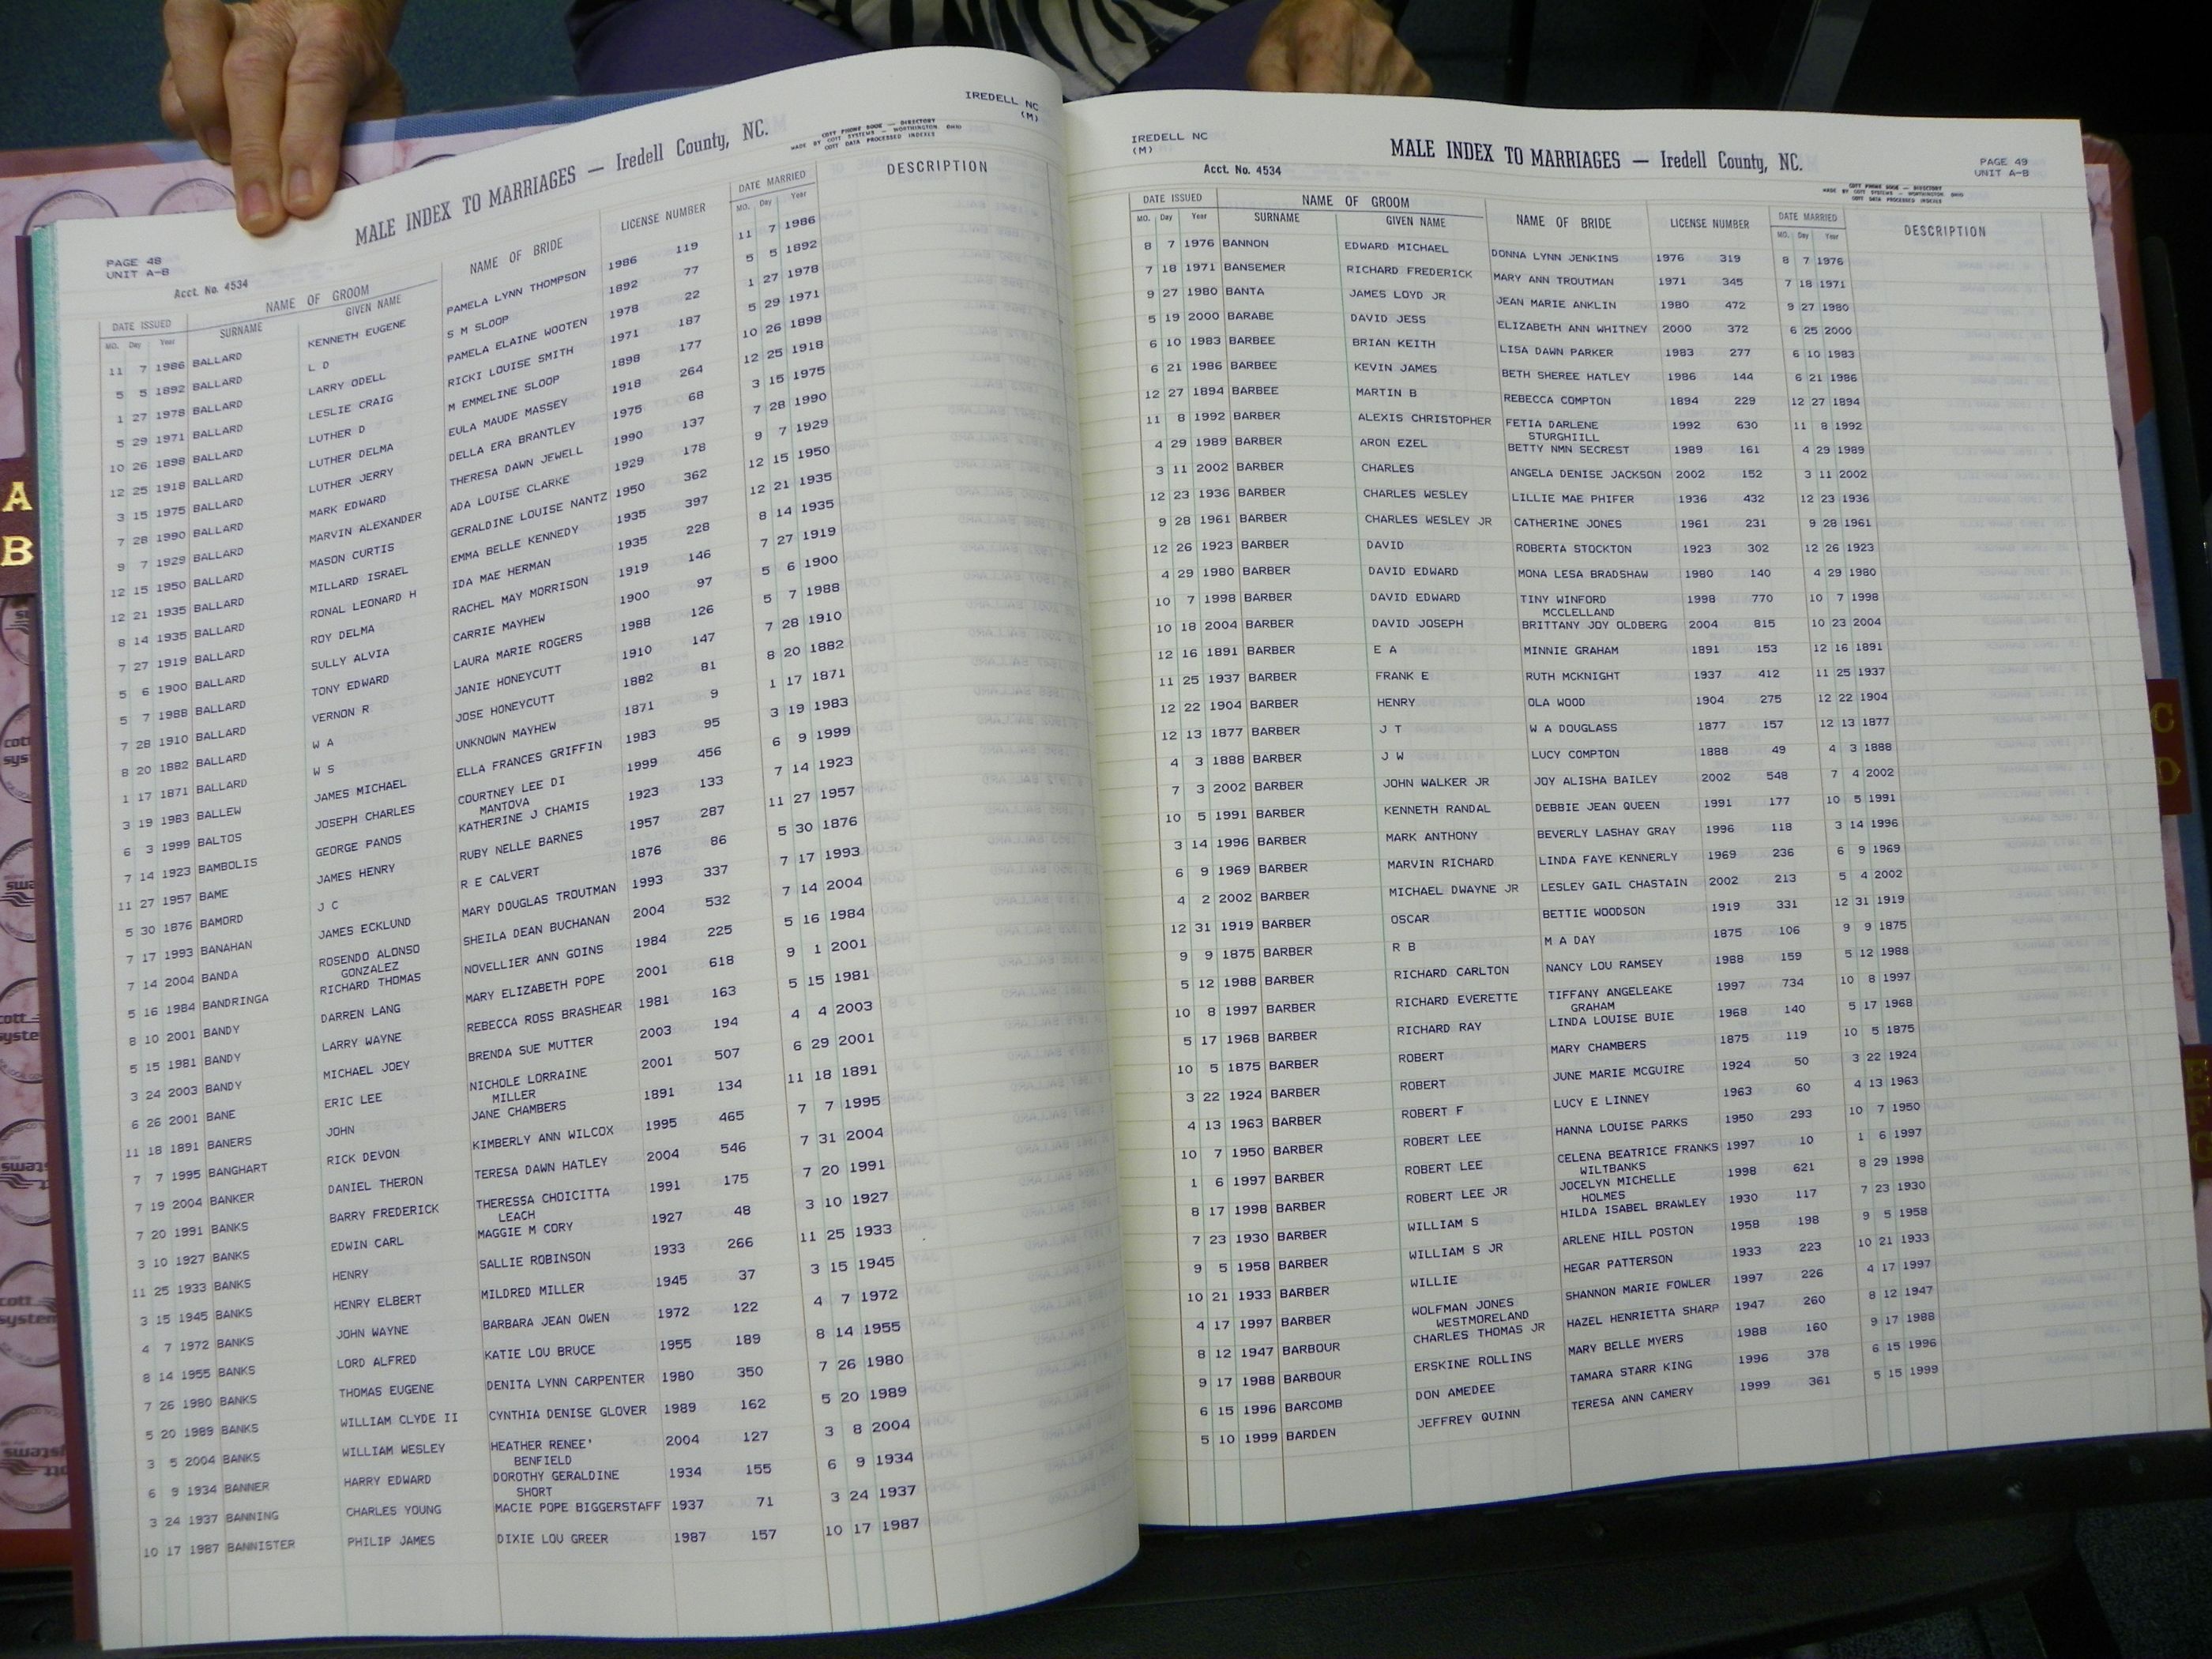 PAGE 48
UNIT A-B
Acct. No. 4534
MALE INDEX TO MARRIAGES — Iredell County, NC.
COTT PHONE BOOK — DIRECTORY
MADE BY COTT SYSTEMS — WORTHINGTON OHIO
COTT DATA PROCESSED INDEXES
IREDELL NC
(M)
DATE ISSUED NAME OF GROOM NAME OF BRIDE LICENSE NUMBER DATE MARRIED DESCRIPTION
MO. Day Year SURNAME GIVEN NAME MO. Day Year
11 7 1986 BALLARD KENNETH EUGENE PAMELA LYNN THOMPSON 1986 119 11 7 1986
5 5 1892 BALLARD L D S M SLOOP 1892 77 5 5 1892
1 27 1978 BALLARD LARRY ODELL PAMELA ELAINE WOOTEN 1978 22 1 27 1978
5 29 1971 BALLARD LESLIE CRAIG RICKI LOUISE SMITH 1971 187 5 29 1971
10 26 1898 BALLARD LUTHER D M EMMELINE SLOOP 1898 177 10 26 1898
12 25 1918 BALLARD LUTHER DELMA EULA MAUDE MASSEY 1918 264 12 25 1918
3 15 1975 BALLARD LUTHER JERRY DELLA ERA BRANTLEY 1975 68 3 15 1975
7 28 1990 BALLARD MARK EDWARD THERESA DAWN JEWELL 1990 137 7 28 1990
9 7 1929 BALLARD MARVIN ALEXANDER ADA LOUISE CLARKE 1929 178 9 7 1929
12 15 1950 BALLARD MASON CURTIS GERALDINE LOUISE NANTZ 1950 362 12 15 1950
12 21 1935 BALLARD MILLARD ISRAEL EMMA BELLE KENNEDY 1935 397 12 21 1935
8 14 1935 BALLARD RONAL LEONARD H IDA MAE HERMAN 1935 228 8 14 1935
7 27 1919 BALLARD ROY DELMA RACHEL MAY MORRISON 1919 146 7 27 1919
5 6 1900 BALLARD SULLY ALVIA CARRIE MAYHEW 1900 97 5 6 1900
5 7 1988 BALLARD TONY EDWARD LAURA MARIE ROGERS 1988 126 5 7 1988
7 28 1910 BALLARD VERNON R JANIE HONEYCUTT 1910 147 7 28 1910
8 20 1882 BALLARD W A JOSE HONEYCUTT 1882 81 8 20 1882
1 17 1871 BALLARD W S UNKNOWN MAYHEW 1871 9 1 17 1871
3 19 1983 BALLEW JAMES MICHAEL ELLA FRANCES GRIFFIN 1983 95 3 19 1983
6 3 1999 BALTOS JOSEPH CHARLES COURTNEY LEE DI 1999 456 6 9 1999
MANTOVA
7 14 1923 BAMBOLIS GEORGE PANOS KATHERINE J CHAMIS 1923 133 7 14 1923
11 27 1957 BAME JAMES HENRY RUBY NELLE BARNES 1957 287 11 27 1957
5 30 1876 BAMORD J C R E CALVERT 1876 86 5 30 1876
7 17 1993 BANAHAN JAMES ECKLUND MARY DOUGLAS TROUTMAN 1993 337 7 17 1993
7 14 2004 BANDA ROSENDO ALONSO SHEILA DEAN BUCHANAN 2004 532 7 14 2004
GONZALEZ
5 16 1984 BANDRINGA RICHARD THOMAS NOVELLIER ANN GOINS 1984 225 5 16 1984
8 10 2001 BANDY DARREN LANG MARY ELIZABETH POPE 2001 618 9 1 2001
5 15 1981 BANDY LARRY WAYNE REBECCA ROSS BRASHEAR 1981 163 5 15 1981
3 24 2003 BANDY MICHAEL JOEY BRENDA SUE MUTTER 2003 194 4 4 2003
6 26 2001 BANE ERIC LEE NICHOLE LORRAINE 2001 507 6 29 2001
MILLER
11 18 1891 BANERS JOHN JANE CHAMBERS 1891 134 11 18 1891
7 7 1995 BANGHART RICK DEVON KIMBERLY ANN WILCOX 1995 465 7 7 1995
7 19 2004 BANKER DANIEL THERON TERESA DAWN HATLEY 2004 546 7 31 2004
7 20 1991 BANKS BARRY FREDERICK THERESSA CHOICITTA 1991 175 7 20 1991
LEACH
3 10 1927 BANKS EDWIN CARL MAGGIE M CORY 1927 48 3 10 1927
11 25 1933 BANKS HENRY SALLIE ROBINSON 1933 266 11 25 1933
3 15 1945 BANKS HENRY ELBERT MILDRED MILLER 1945 37 3 15 1945
4 7 1972 BANKS JOHN WAYNE BARBARA JEAN OWEN 1972 122 4 7 1972
8 14 1955 BANKS LORD ALFRED KATIE LOU BRUCE 1955 189 8 14 1955
7 26 1980 BANKS THOMAS EUGENE DENITA LYNN CARPENTER 1980 350 7 26 1980
5 20 1989 BANKS WILLIAM CLYDE II CYNTHIA DENISE GLOVER 1989 162 5 20 1989
3 5 2004 BANKS WILLIAM WESLEY HEATHER RENEE' 2004 127 3 8 2004
BENFIELD
6 9 1934 BANNER HARRY EDWARD DOROTHY GERALDINE 1934 155 6 9 1934
SHORT
3 24 1937 BANNING CHARLES YOUNG MACIE POPE BIGGERSTAFF 1937 71 3 24 1937
10 17 1987 BANNISTER PHILIP JAMES DIXIE LOU GREER 1987 157 10 17 1987
IREDELL NC
(M)
Acct. No. 4534
MALE INDEX TO MARRIAGES — Iredell County, NC.
PAGE 49
UNIT A-B
COTT PHONE BOOK — DIRECTORY
MADE BY COTT SYSTEMS — WORTHINGTON OHIO
COTT DATA PROCESSED INDEXES
DATE ISSUED NAME OF GROOM NAME OF BRIDE LICENSE NUMBER DATE MARRIED DESCRIPTION
MO. Day Year SURNAME GIVEN NAME MO. Day Year
8 7 1976 BANNON EDWARD MICHAEL DONNA LYNN JENKINS 1976 319 8 7 1976
7 18 1971 BANSEMER RICHARD FREDERICK MARY ANN TROUTMAN 1971 345 7 18 1971
9 27 1980 BANTA JAMES LOYD JR JEAN MARIE ANKLIN 1980 472 9 27 1980
5 19 2000 BARABE DAVID JESS ELIZABETH ANN WHITNEY 2000 372 6 25 2000
6 10 1983 BARBEE BRIAN KEITH LISA DAWN PARKER 1983 277 6 10 1983
6 21 1986 BARBEE KEVIN JAMES BETH SHEREE HATLEY 1986 144 6 21 1986
12 27 1894 BARBEE MARTIN B REBECCA COMPTON 1894 229 12 27 1894
11 8 1992 BARBER ALEXIS CHRISTOPHER FETIA DARLENE 1992 630 11 8 1992
STURGHIILL
4 29 1989 BARBER ARON EZEL BETTY NMN SECREST 1989 161 4 29 1989
3 11 2002 BARBER CHARLES ANGELA DENISE JACKSON 2002 152 3 11 2002
12 23 1936 BARBER CHARLES WESLEY LILLIE MAE PHIFER 1936 432 12 23 1936
9 28 1961 BARBER CHARLES WESLEY JR CATHERINE JONES 1961 231 9 28 1961
12 26 1923 BARBER DAVID ROBERTA STOCKTON 1923 302 12 26 1923
4 29 1980 BARBER DAVID EDWARD MONA LESA BRADSHAW 1980 140 4 29 1980
10 7 1998 BARBER DAVID EDWARD TINY WINFORD 1998 770 10 7 1998
MCCLELLAND
10 18 2004 BARBER DAVID JOSEPH BRITTANY JOY OLDBERG 2004 815 10 23 2004
12 16 1891 BARBER E A MINNIE GRAHAM 1891 153 12 16 1891
11 25 1937 BARBER FRANK E RUTH MCKNIGHT 1937 412 11 25 1937
12 22 1904 BARBER HENRY OLA WOOD 1904 275 12 22 1904
12 13 1877 BARBER J T W A DOUGLASS 1877 157 12 13 1877
4 3 1888 BARBER J W LUCY COMPTON 1888 49 4 3 1888
7 3 2002 BARBER JOHN WALKER JR JOY ALISHA BAILEY 2002 548 7 4 2002
10 5 1991 BARBER KENNETH RANDAL DEBBIE JEAN QUEEN 1991 177 10 5 1991
3 14 1996 BARBER MARK ANTHONY BEVERLY LASHAY GRAY 1996 118 3 14 1996
6 9 1969 BARBER MARVIN RICHARD LINDA FAYE KENNERLY 1969 236 6 9 1969
4 2 2002 BARBER MICHAEL DWAYNE JR LESLEY GAIL CHASTAIN 2002 213 5 4 2002
12 31 1919 BARBER OSCAR BETTIE WOODSON 1919 331 12 31 1919
9 9 1875 BARBER R B M A DAY 1875 106 9 9 1875
5 12 1988 BARBER RICHARD CARLTON NANCY LOU RAMSEY 1988 159 5 12 1988
10 8 1997 BARBER RICHARD EVERETTE TIFFANY ANGELEAKE 1997 734 10 8 1997
GRAHAM
5 17 1968 BARBER RICHARD RAY LINDA LOUISE BUIE 1968 140 5 17 1968
10 5 1875 BARBER ROBERT MARY CHAMBERS 1875 119 10 5 1875
3 22 1924 BARBER ROBERT JUNE MARIE MCGUIRE 1924 50 3 22 1924
4 13 1963 BARBER ROBERT F LUCY E LINNEY 1963 60 4 13 1963
10 7 1950 BARBER ROBERT LEE HANNA LOUISE PARKS 1950 293 10 7 1950
1 6 1997 BARBER ROBERT LEE CELENA BEATRICE FRANKS 1997 10 1 6 1997
WILTBANKS
8 17 1998 BARBER ROBERT LEE JR JOCELYN MICHELLE 1998 621 8 29 1998
HOLMES
7 23 1930 BARBER WILLIAM S HILDA ISABEL BRAWLEY 1930 117 7 23 1930
9 5 1958 BARBER WILLIAM S JR ARLENE HILL POSTON 1958 198 9 5 1958
10 21 1933 BARBER WILLIE HEGAR PATTERSON 1933 223 10 21 1933
4 17 1997 BARBER WOLFMAN JONES SHANNON MARIE FOWLER 1997 226 4 17 1997
WESTMORELAND
8 12 1947 BARBOUR CHARLES THOMAS JR HAZEL HENRIETTA SHARP 1947 260 8 12 1947
9 17 1988 BARBOUR ERSKINE ROLLINS MARY BELLE MYERS 1988 160 9 17 1988
6 15 1996 BARCOMB DON AMEDEE TAMARA STARR KING 1996 378 6 15 1996
5 10 1999 BARDEN JEFFREY QUINN TERESA ANN CAMERY 1999 361 5 15 1999
A
B
C
D